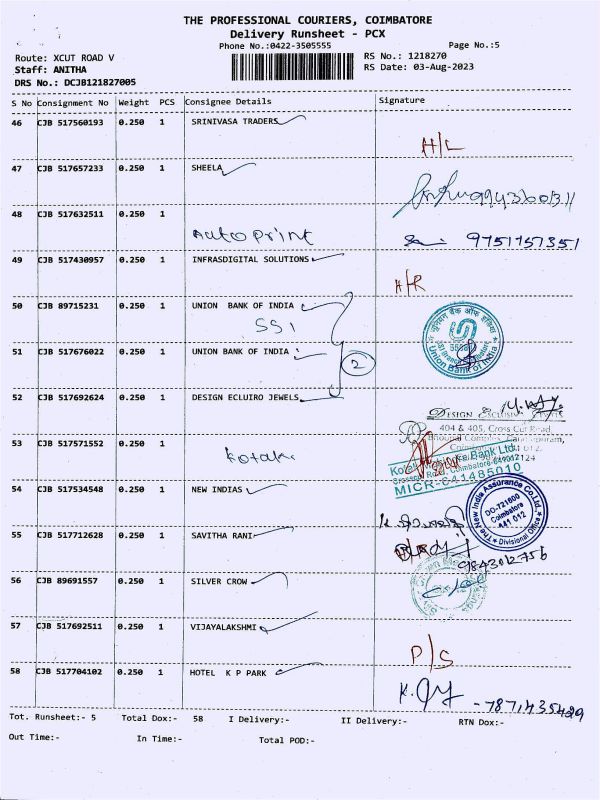 THE PROFESSIONAL COURIERS, COIMBATORE
Delivery Runsheet - PCX
Phone No.:0422-3505555
Page No.:5
Route: XCUT ROAD V
RS No.: 1218270
Staff: ANITHA
RS Date: 03-Aug-2023
DRS No.: DCJB121827005
S No Consignment No Weight PCS Consignee Details Signature
46 CJB 517560193 0.250 1 SRINIVASA TRADERS
H/L
47 CJB 517657233 0.250 1 SHEELA
48 CJB 517632511 0.250 1
Auto Print 9751757351
49 CJB 517430957 0.250 1 INFRASDIGITAL SOLUTIONS
H/R
50 CJB 89715231 0.250 1 UNION BANK OF INDIA
SSI
51 CJB 517676022 0.250 1 UNION BANK OF INDIA
2
Union Bank of India
52 CJB 517692624 0.250 1 DESIGN ECLUIRO JEWELS
DESIGN
404 & 405, Cross Cut Road,
53 CJB 517571552 0.250 1
Kotak
Bank Ltd.
MICR-641485010
54 CJB 517534548 0.250 1 NEW INDIAS
The New India Assurance Co.Ltd.
DO-721600
Coimbatore
641 012
Divisional Office
55 CJB 517712628 0.250 1 SAVITHA RANI
9843012756
56 CJB 89691557 0.250 1 SILVER CROW
57 CJB 517692511 0.250 1 VIJAYALAKSHMI
P/S
58 CJB 517704102 0.250 1 HOTEL K P PARK
Tot. Runsheet:- 5 Total Dox:- 58 I Delivery:- II Delivery:- RTN Dox:-
Out Time:- In Time:- Total POD:-